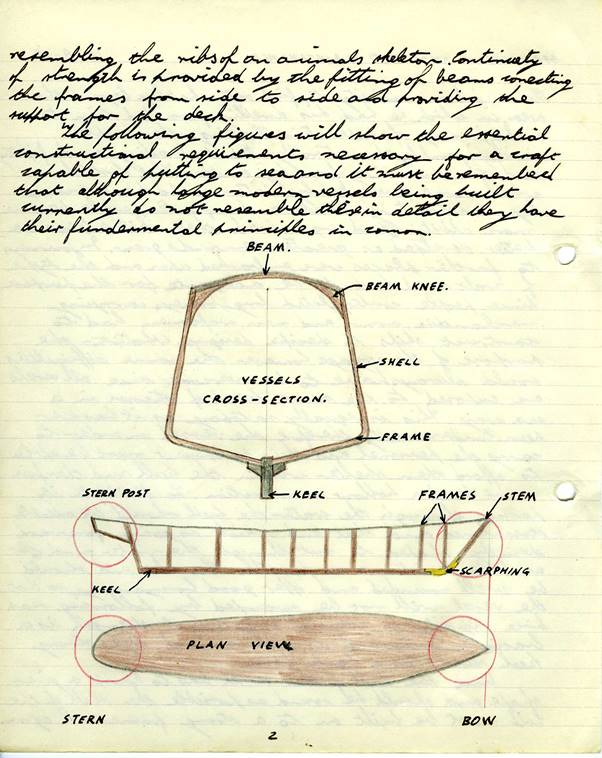 resembling the ribs of an animals skeleton. Continuety
of strength is provided by the fitting of beams conecting
the frames from side to side and providing the
support for the deck.
The following figures will show the essential
constructional requirements necessary for a craft
capable of putting to sea and it must be remembed
that although large modern vessels being built
currently do not resemble these in detail they have
their fundermental principles in comon.
BEAM.
BEAM KNEE.
SHELL
VESSELS
CROSS-SECTION.
FRAME
KEEL
STERN POST
FRAMES
STEM
KEEL
SCARPHING
PLAN VIEW
STERN
BOW
2